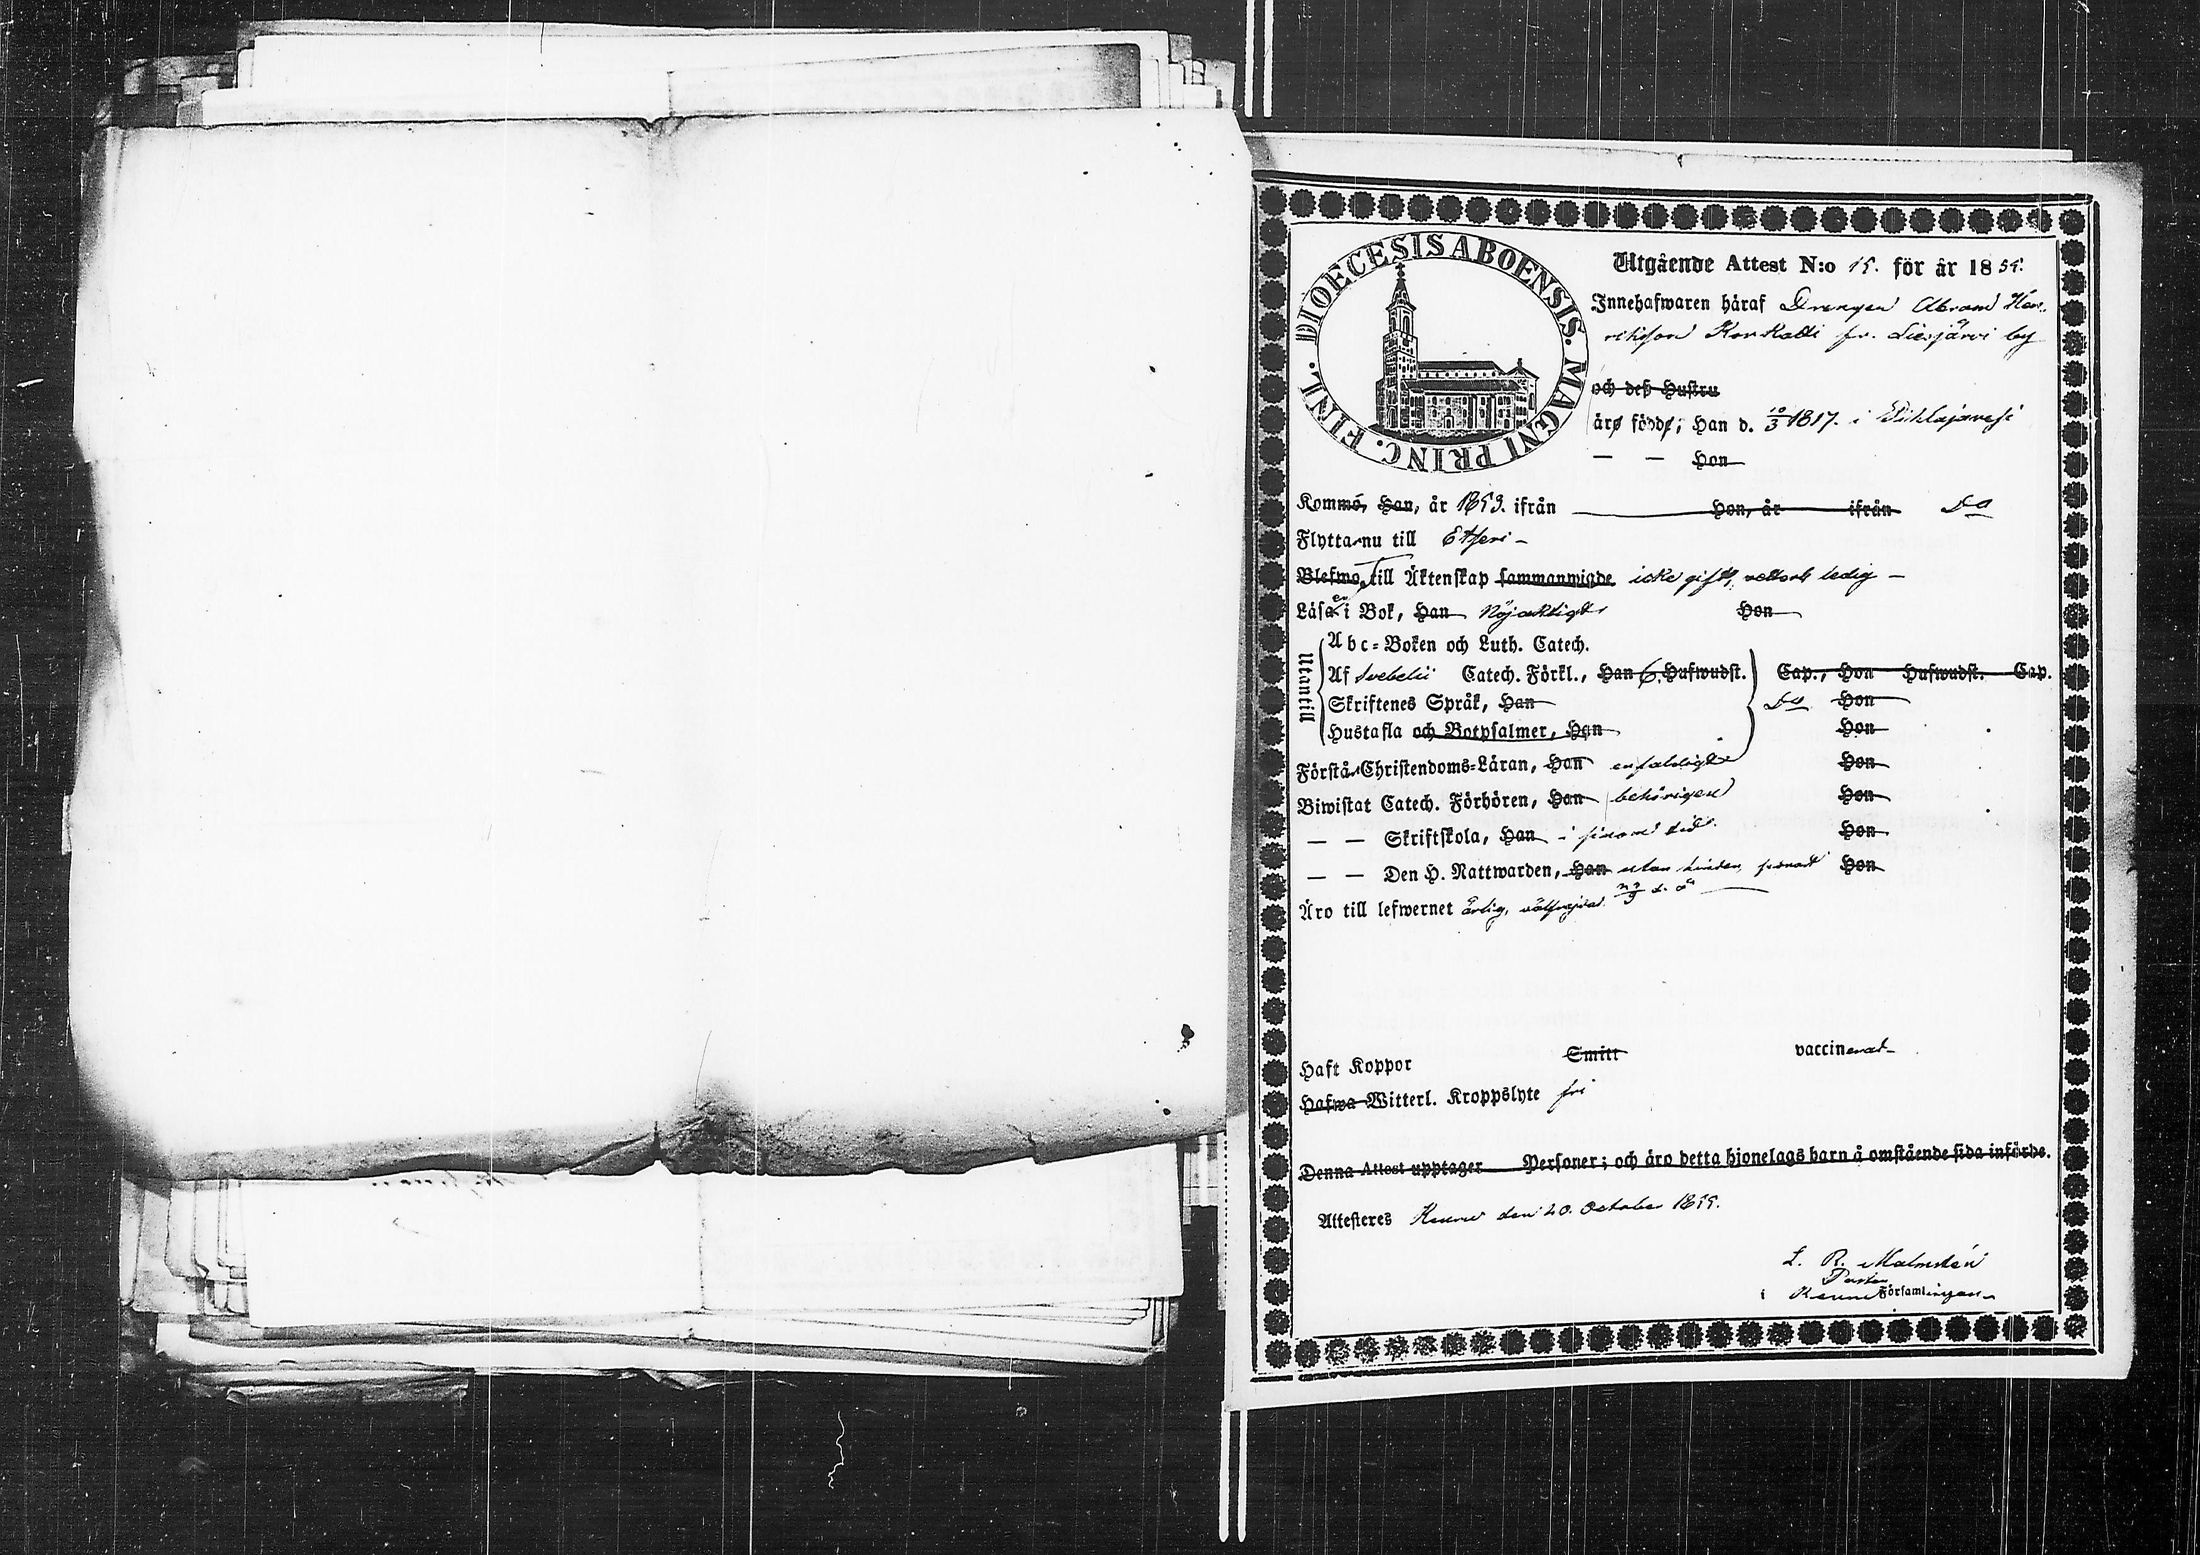 DIOECESIS ABOENSIS. MAGNI PRINC. FINL.
Utgående Attest N:o 15. för år 1855.
Innehafwaren häraf Drengen Abram Hen-
rikson fr. Liesjärvi by
och deß Hustru
äro födde; Han d. 10/3 1817. i Pihlajavesi
— — Hon
Kommo, Han, år 1853. ifrån Hon, år ifrån Do
Flytta nu till Etseri –
Blefwo till Äktenskap sammanwigde icke gift, ledig –
Läsa er i Bok, Han Nöjaktigt Hon
Utantill
Abc-Boken och Luth. Catech.
Af Svebelii Catech. Förkl., Han 6. Hufwudst. Cap., Hon Hufwudst. Cap.
Skriftenes Språk, Han Do Hon
Hustafla och Botpsalmer, Han Hon
Förstå Christendoms-Läran, Han enfaldigt Hon
Biwistat Catech. Förhören, Han behörigen Hon
— — Skriftskola, Han i sinom tid Hon
— — Den H. Nattwarden, Han utan hinder, senast Hon
Äro till lefwernet ärlig, välfrejdad.
Haft Koppor Smitt vaccinerad –
Hafwa Witterl. Kroppslyte fri
Denna Attest upptager Personer; och äro detta hjonelags barn å omstående sida införde.
Attesteres Keuru den 20. October 1855.
L. R. Malmstén
Pastor
i Keuru Församlingen